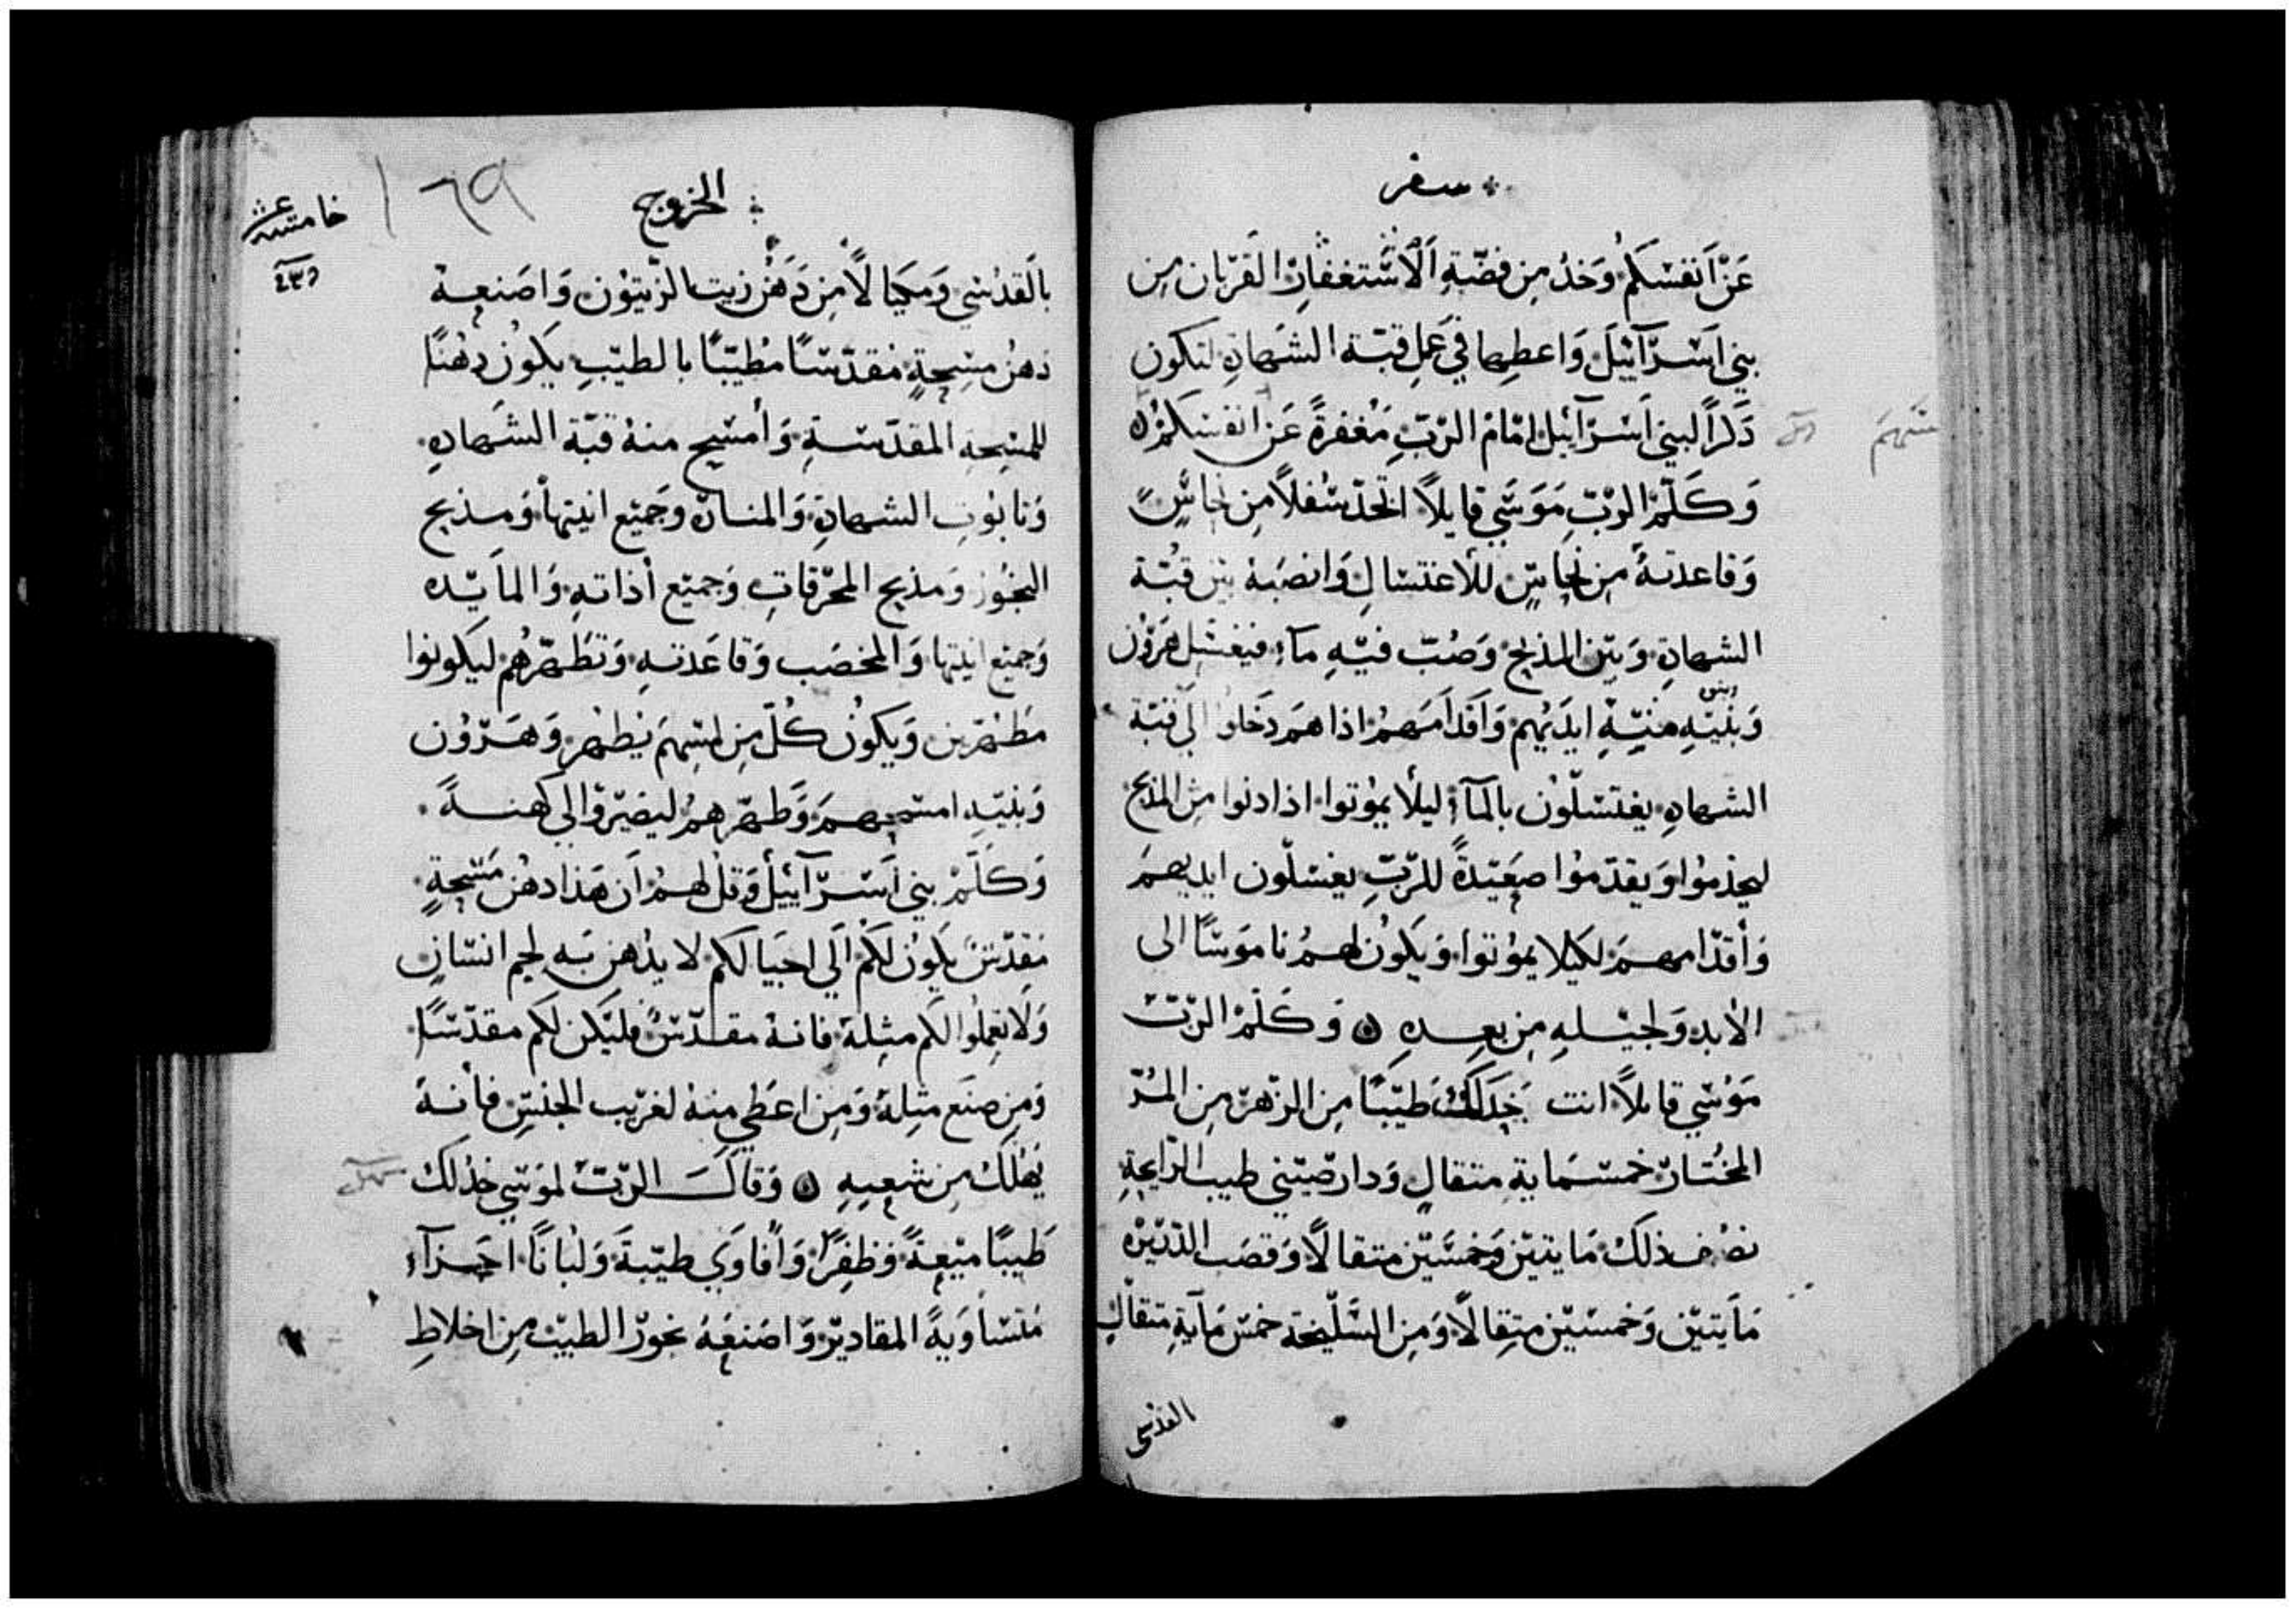 سفر
عَنْ اَنفسَكمُ وَخدُ مِن فضّةِ اَلاسْتغفارِ القرْبان مِن
بني اسَرآئيلَ وَاعطِها في عَملِ قبّة الشهادةِ لتكون
ذكراً لبني اسَرآئيل امَام الربِّ مَغفرةً عَن انفسكمُ
وَكلّمْ الربّ مَوسَي قايلاً اتخدْ سُفلاً مِن نحاسٍ
وَقاعدتهُ مِن نحاسٍ للاغتسالِ وَانصَبهُ بيْن قبّة
الشهادةِ وَبيْن المذبحِ وَصُبّ فيْهِ مآءً فيغسّل هَرَوُن
وَبنيْهِ منيّهِ ايدَيْهم وَاَقدامَهمْ اذا همَ دَخلوُا الي قبّة
وبنو
الشهادهِ يغتسَلوُن بالمآءِ ليلاْ يموُتوا اذا دنوا من المذبح
ليخدمُوا وَيقدّموُا صعَيْدةً للربِّ يغسلّون ايديهمَ
وَأقدّامهمَ لكيلا يموُتوا وَيكوُن لهمُ نامَوسَاً الي
الأبدِ وَلجيْلهِ مِن بعِدهِ ۞ وَكلّمْ الربّ
مَوُسي قايلاً انت خذلكُ طيّبَاً مِن الزهرْ مِن المُرّ
المختارْ خمسَمايةِ مثقالٍ وَدارصيْني طيب الرايحةِ
نصْف ذلكْ مَايتيْن وَخمسَيْن متقالاً وَقصَب الذريْره
مَايتيْن وَخمسيْن متِقالاً وَمِن السَّليْخة خمسْ مَايةِ متقالٍ
القدسي
الخروج
١٦٩
خامسة عشر
بالقدُسي وَميكَالاً مِن دَهنْ زيت الزّيتوُن وَاصَنعهْ
دهنُ مسِحةٍ مُقدّسَاً مُطيّبَاً بالطيّبِ يكوُن دهُناً
للمسِحةِ المقدّسةِ وَأمسَح منهُ قبّة الشهادهِ
وَتابوُت الشهادةِ وَالمنارة وَجميْع انيتهاْ وَمذبح
البخُور وَمذبح المحرّقاتِ وَجميْع أداتهِ وَالمايْده
وَجميْع انيتها وَالمخضَب وَقاعَدتهِ وَتطَهرّهُم ليَكونوُا
مَطهرّين وَيكوُن كُلّ مِن لمسِهمَ يَطهر وَهرّوُن
وَبنيْهِ امسَحهمَ وَطهّرهمُ ليصَيْروُا لي كهنةً
وَكلّمْ بني اسَرآئيلْ وَقل لهمُ ان هَذا دهنُ مَسْحةٍ
مَقدّسْ يكوُن لكمُ الَي احبَالكم لا يدُهن به لحم انسَان
وَلا تعِملوُا لكم مثِله فانهُ مقدّسٌ فليْكن لكم مقدّسَاً
وَمن صنَع مثِلهُ وَمِن اعطَي منهُ لغرْيب الجنسِ فأنهُ
يهُلك مِن شعِبهِ ۞ وَقالَ الربّ لموَسَي خذلكْ
طَيبَاً ميْعةً وَظفِرًا وَأفاوَي طيّبةَ وَلبُاناً اجَزآءِ
مَتسَاوَيةً المقاديرْ وَاصَنعَهُ بخورْ الطيّب مِن اخلاطِ